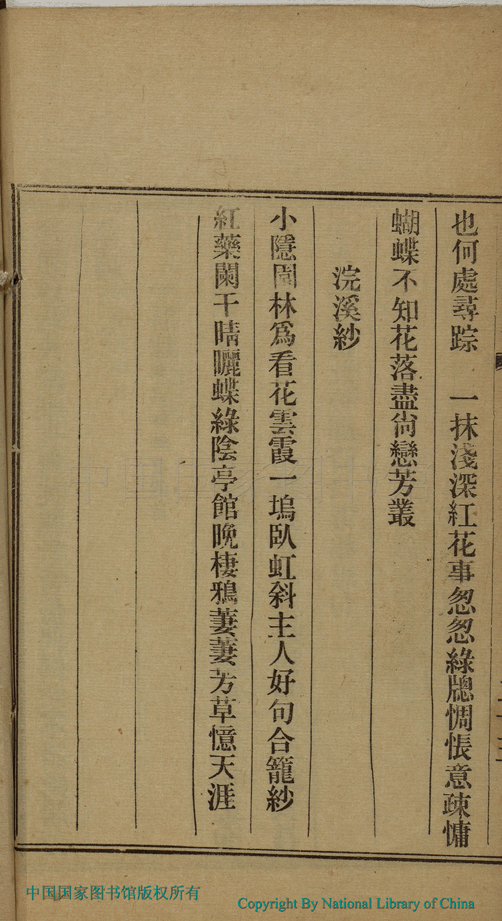 也何處尋踪　一抹淺深紅花事怱怱綠牎惆悵意疎慵
蝴蝶不知花落盡尙戀芳叢
浣溪紗
小隱園林爲看花雲霞一塢臥虹斜主人好句合籠紗
紅藥闌干晴曬蝶綠陰亭館晚棲鴉萋萋芳草憶天涯
中国国家图书馆版权所有
Copyright By National Library of China